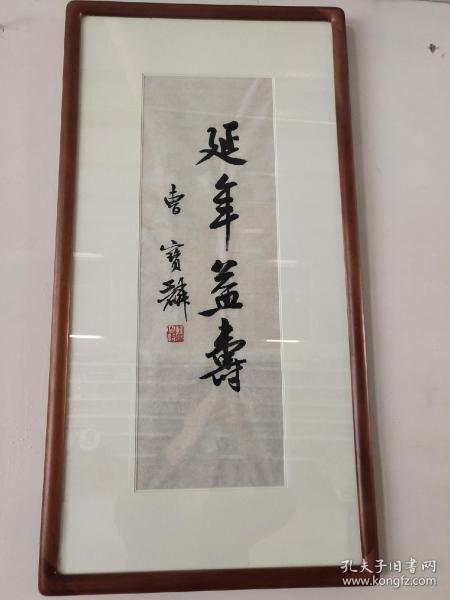 延年益壽
曹寶麟
孔夫子旧书网
www.kongfz.com